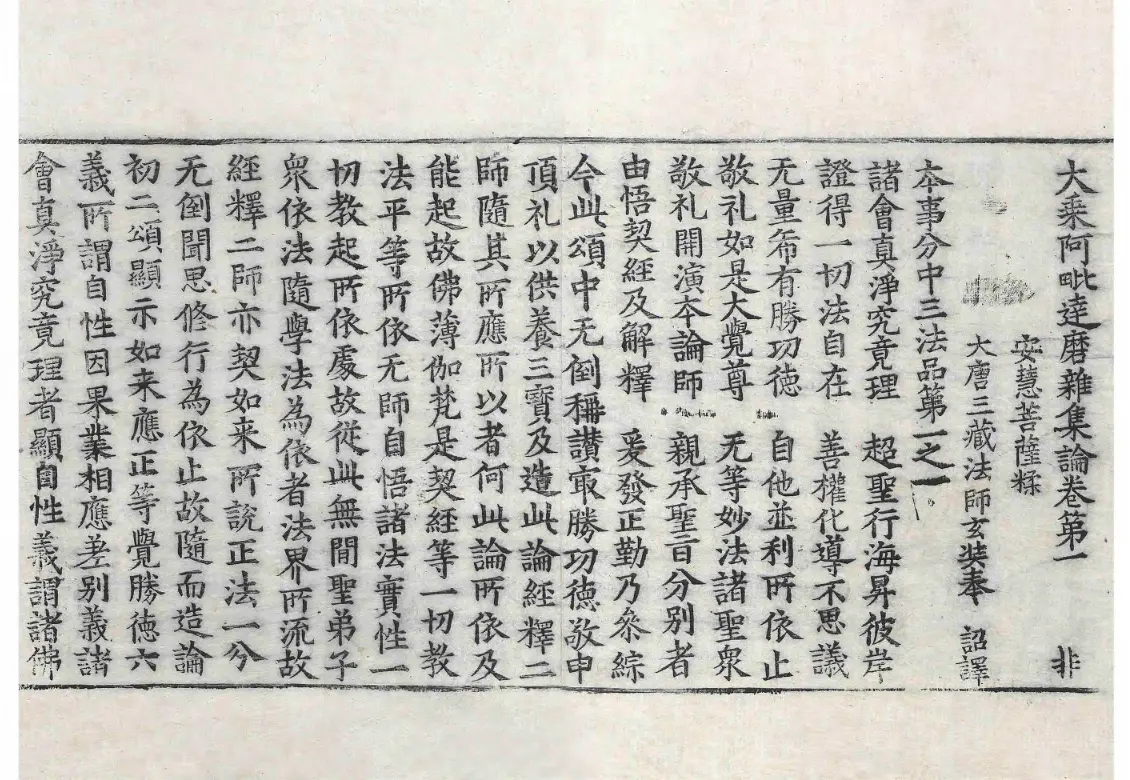 大乘阿毗達磨雜集論卷第一 非
安慧菩薩糅
大唐三藏法師玄奘奉 詔譯
本事分中三法品第一之一
諸會真淨究竟理 超聖行海昇彼岸
證得一切法自在 善權化導不思議
无量希有勝功德 自他並利所依止
敬礼如是大覺尊 无等妙法諸聖衆
敬礼開演本論師 親承聖旨分別者
由悟契經及解釋 爰發正勤乃叅綜
今此頌中无倒稱讃冣勝功德敬申
頂礼以供養三寶及造此論經釋二
師隨其所應所以者何此論所依及
能起故佛薄伽梵是契經等一切教
法平等所依无師自悟諸法實性一
切教起所依處故從此無間聖弟子
衆依法隨學法為依者法界所流故
經釋二師亦契如来所說正法一分
无倒聞思修行為依止故隨而造論
初二頌顯示如来應正等覺勝德六
義所謂自性因果業相應差别義諸
會真淨究竟理者顯自性義謂諸佛